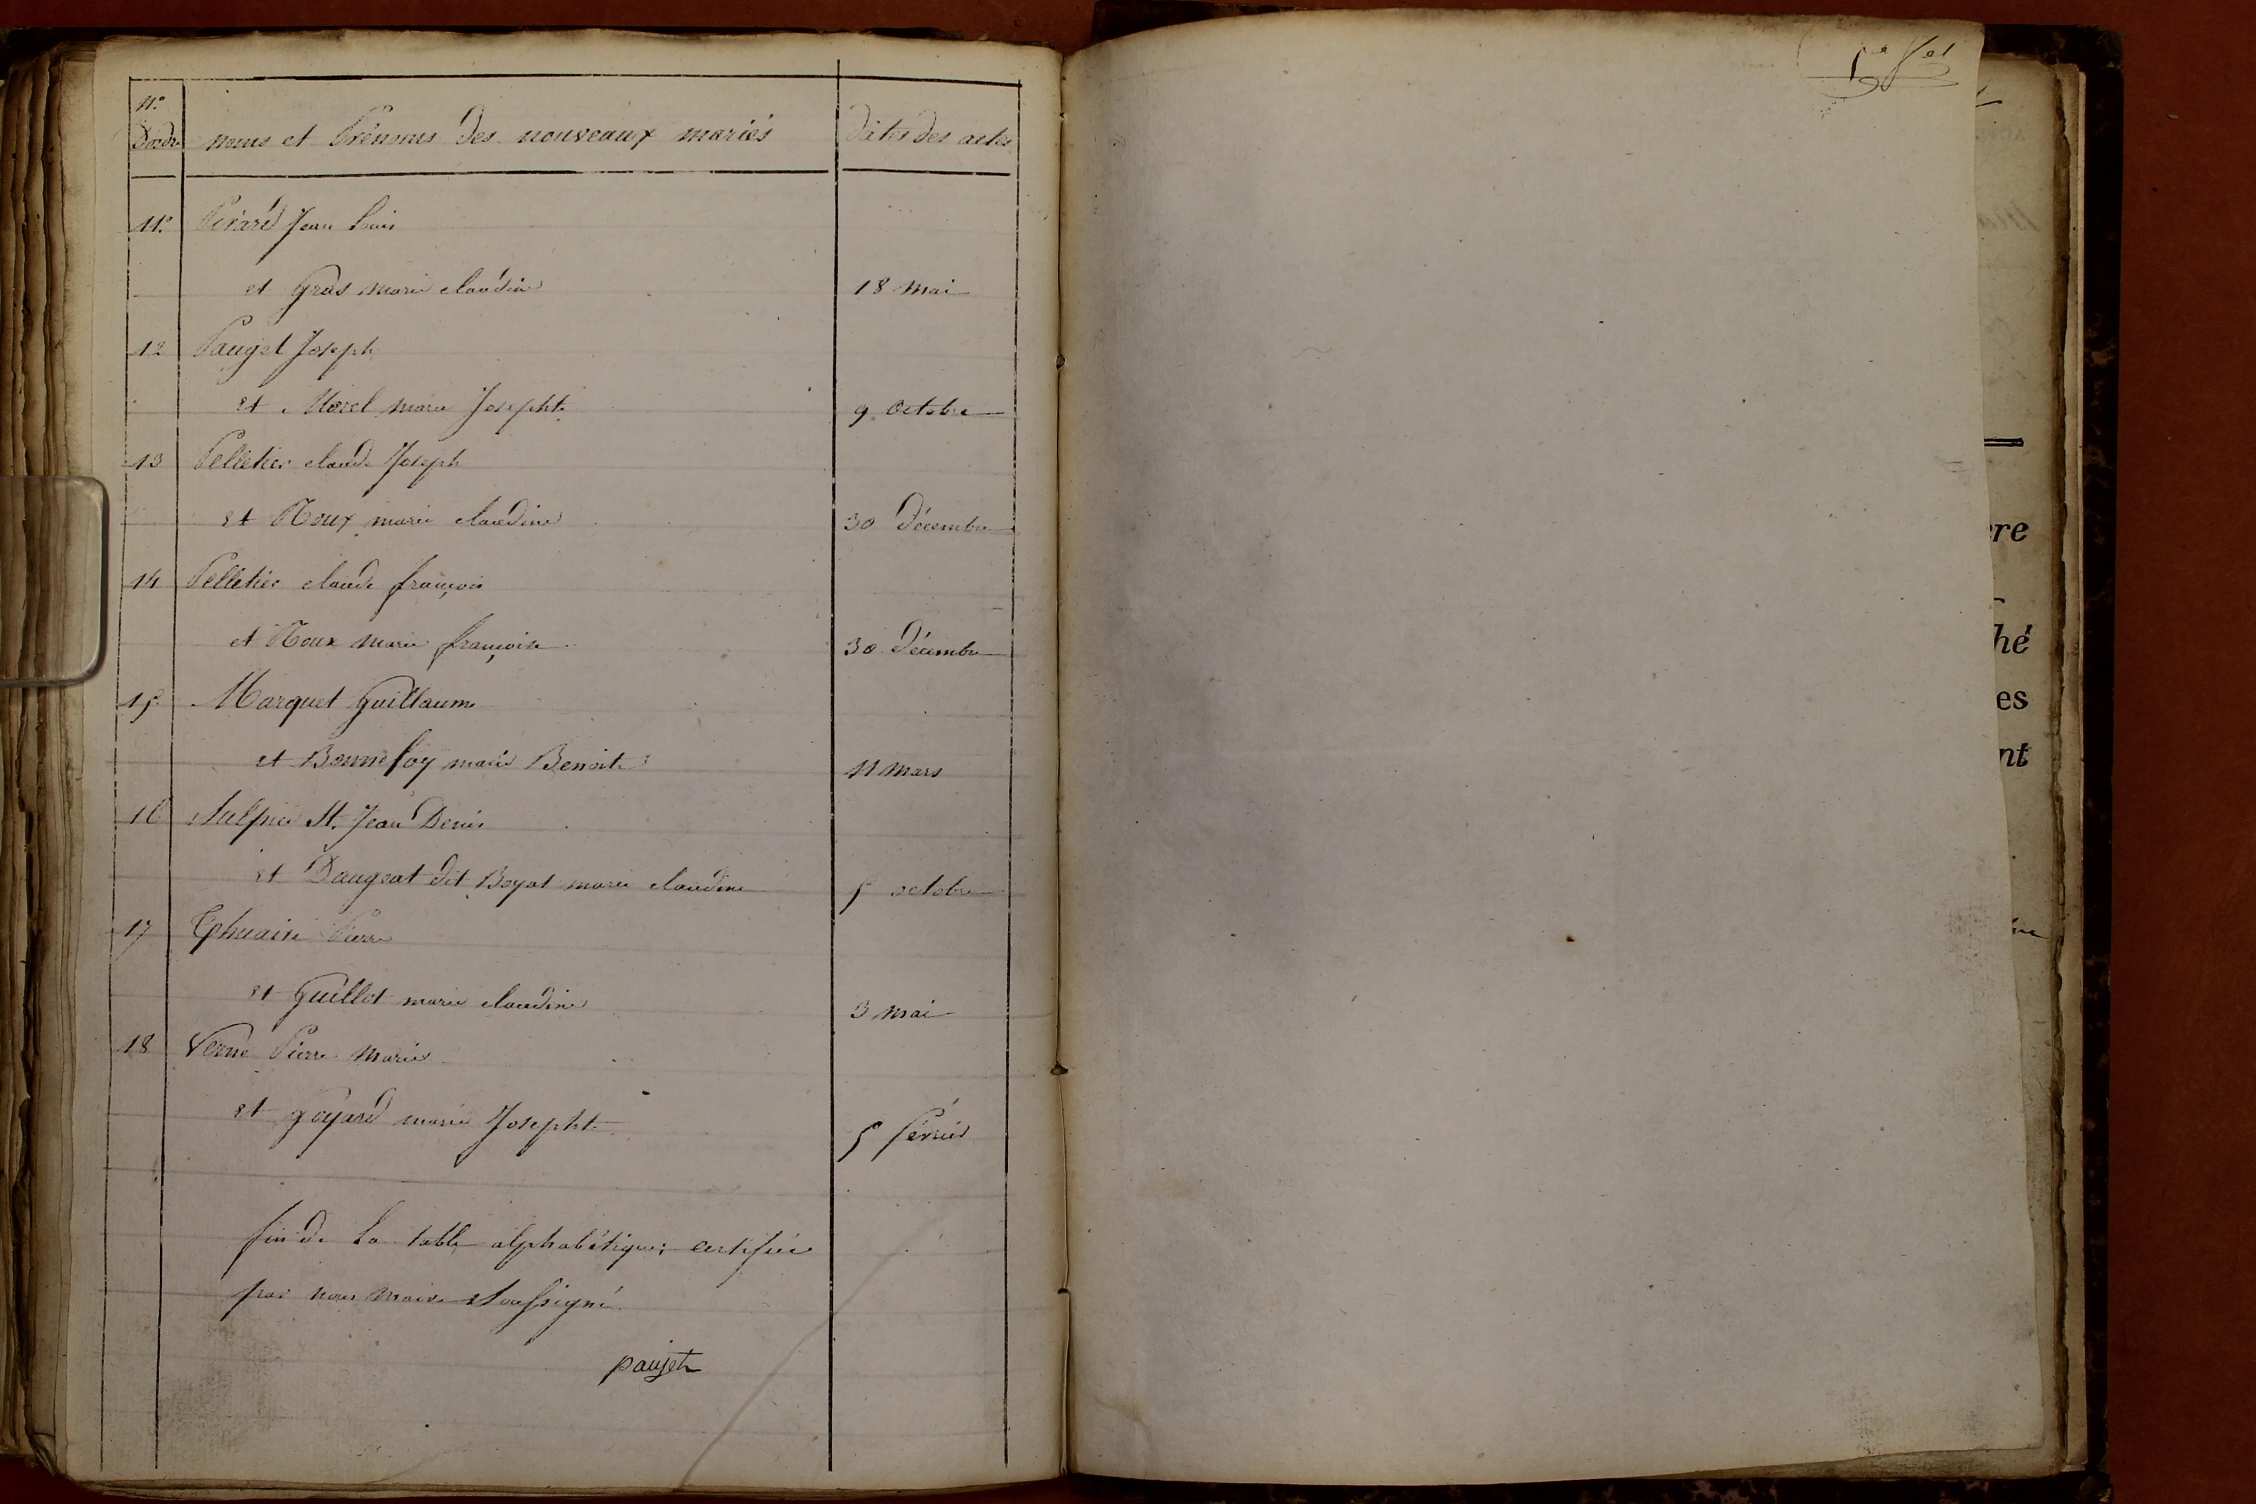 N.°
D'ordre noms et Prénoms des nouveaux mariés Dates des actes
11. Pirard Jean Louis
et Gras marie claudine 18 mai
12 Pauget Joseph
et Morel marie Josephte 9 octobre
13 Pelletier claude Joseph
et Roux marie claudine 30 décembre
14 Pelletier claude françois
et Roux marie françoise 30 décembre
15 Marquet Guillaume
et Bonnefoy marie Benoite 11 mars
16 Sulpice St. Jean Denis
et Daugeat dit Boyat marie claudine 5 octobre
17 Pierre
et Guillot marie claudine 3 mai
18 Verne Pierre Marie
et goyard marie Josephte 5 février
fin de la table alphabétique; certifiée
par nous maire soussigné
pauget
ere
hé
es
nt